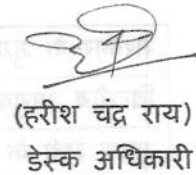 (हरीश चंद्र राय)
डेस्क अधिकारी